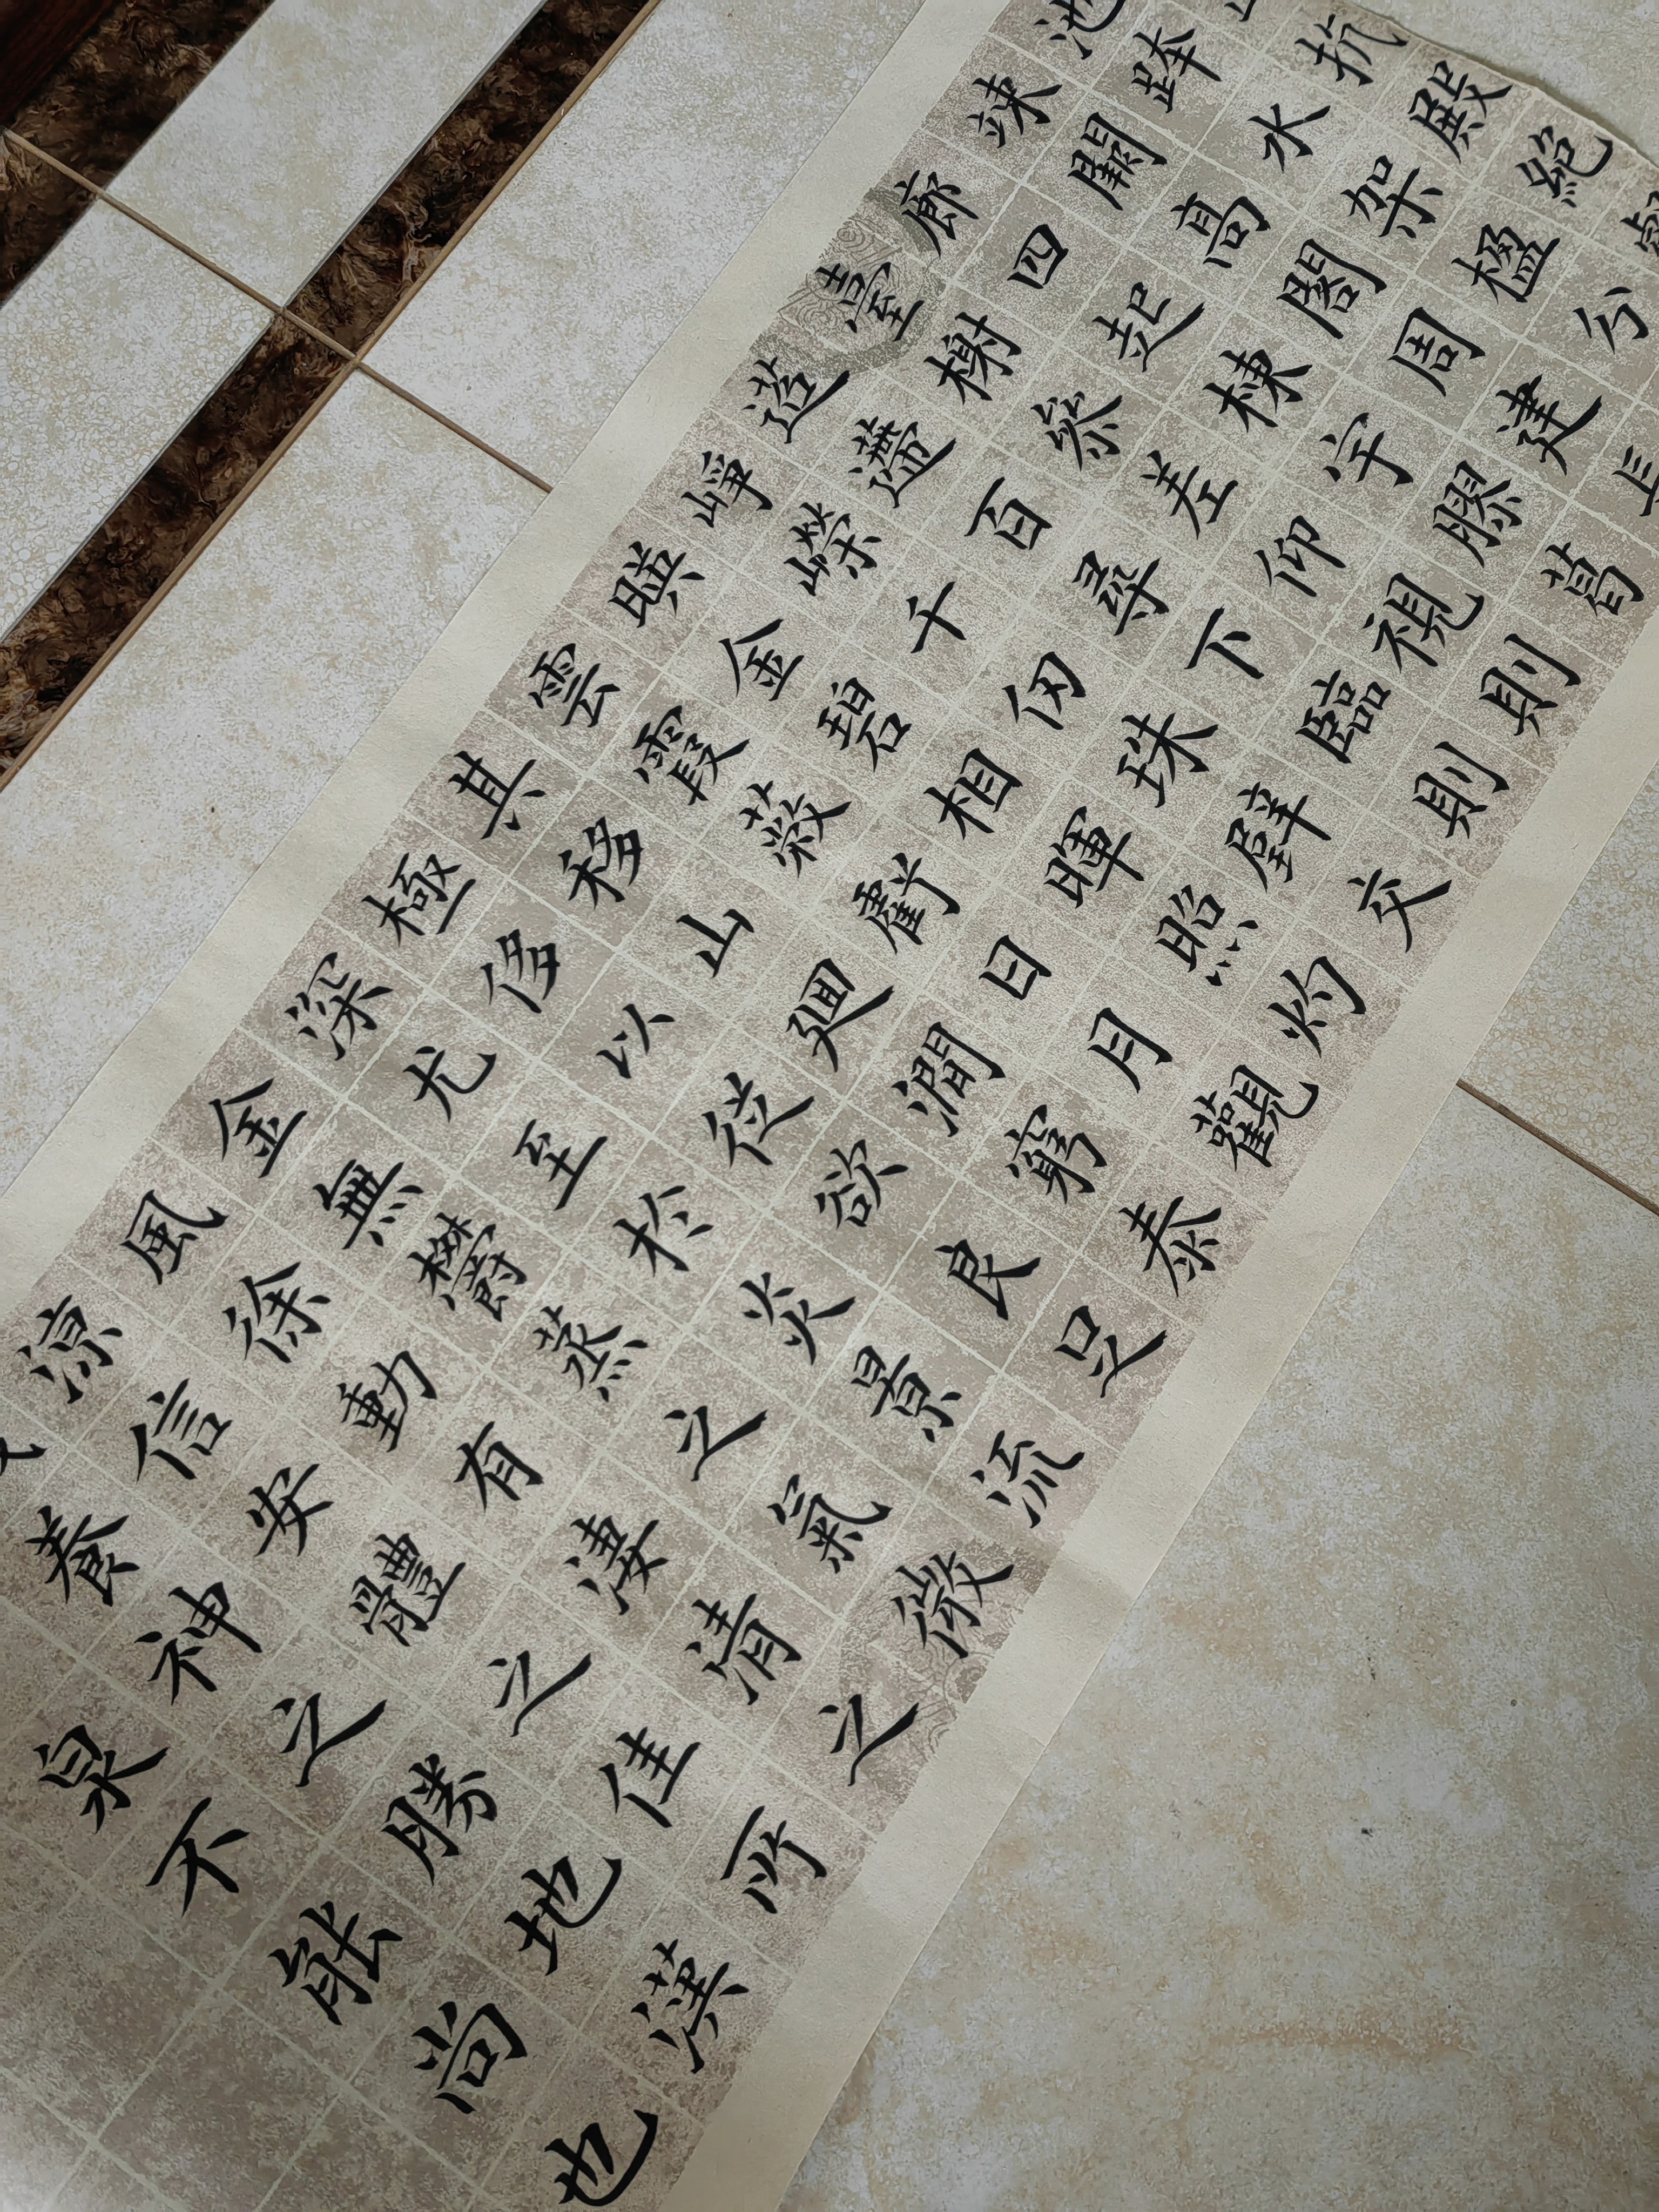 抗殿絕
池跨水架楹分
竦闕高閣周建
廊四起棟宇膠葛
臺榭參差仰視則
迢遰百尋下臨則
崢嶸千仞珠璧交
暎金碧相暉照灼
雲霞蔽虧日月觀
其移山迴澗窮泰
極侈以從欲良足
深尤至於炎景流
金無鬱蒸之氣微
風徐動有淒清之
涼信安體之佳所
養神之勝地漢
泉不能尚也